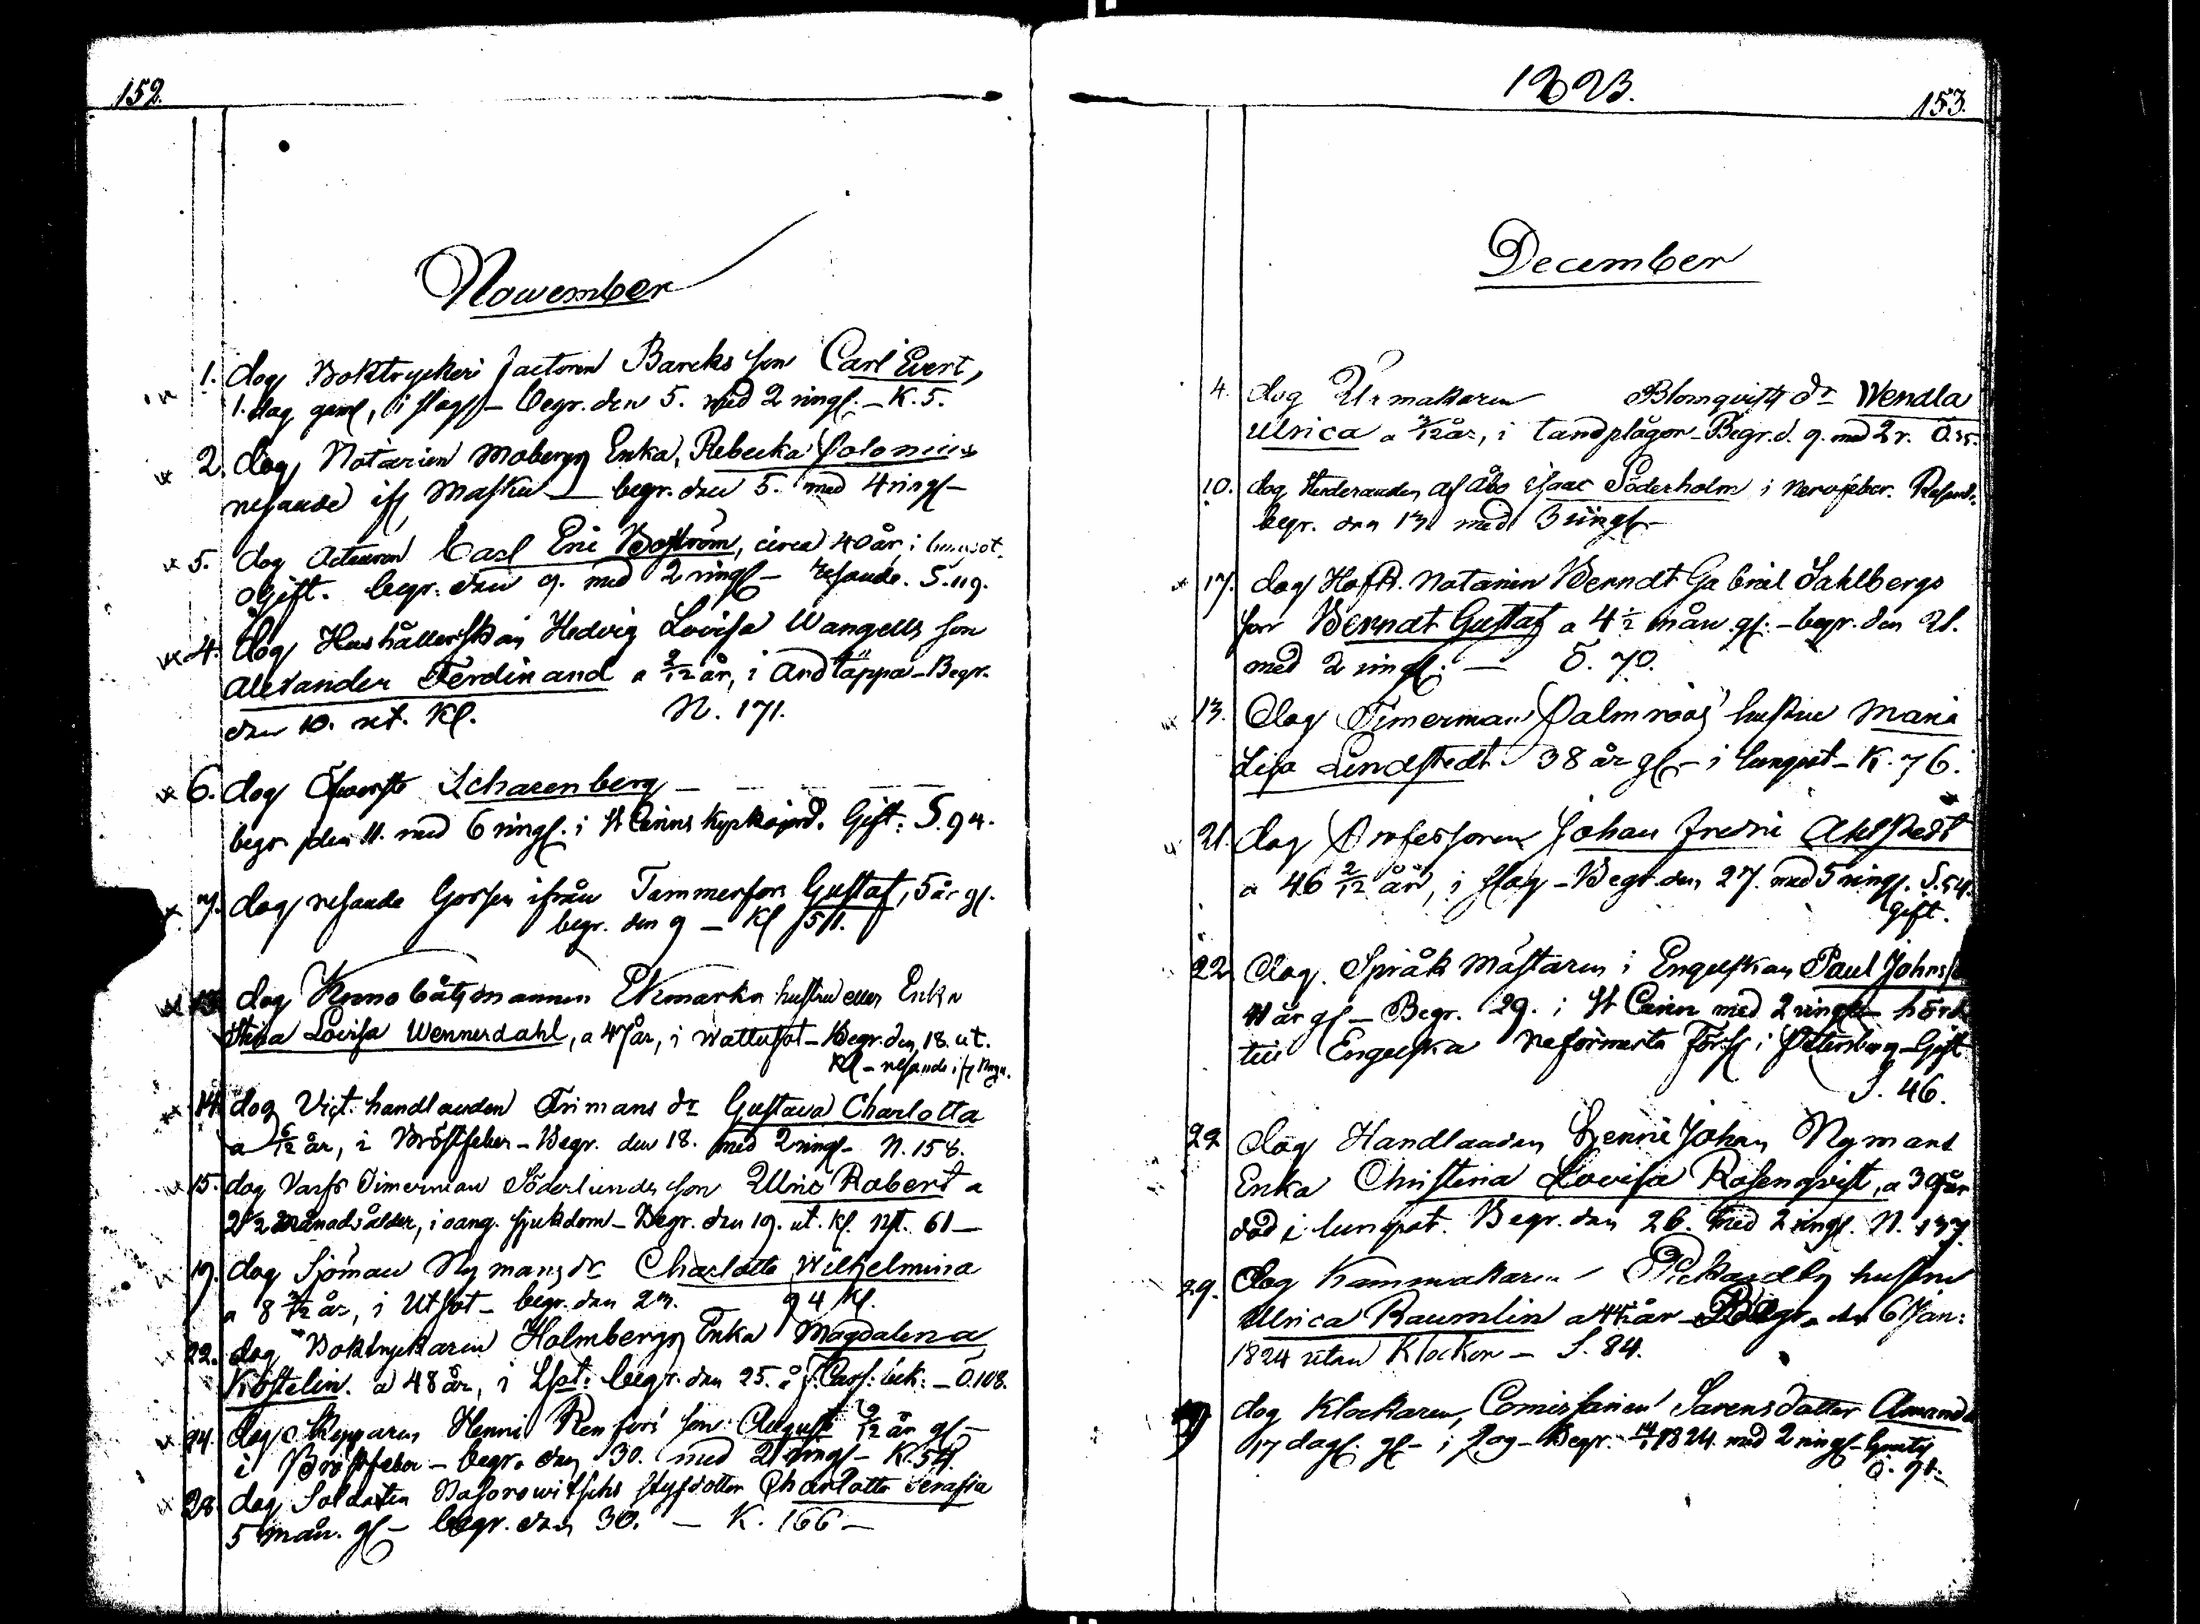 152.
Nowember
1. dog Boktryckeri factoren Barcks son Carl Evert,
1. dag gaml, i slag - begr. den 5. med 2 ringl. - K. 5.
2. dog Notarien Mobergs Enka, Rebecka Polonius
resande ifr. Masku - begr. den 5. med 4 ringl -
5. dog Actuarien Carl Eric Boström, circa 40 år i lungsot.
ogift. begr. den 9. med 2 ringl - resande. S. 119.
4. dog Hushållerskan Hedvig Lovisa Wangells son
Alexander Ferdinand a 2/12 år, i Andtäppa - Begr.
den 10. ut. Kl. N. 171.
6. dog Öfwerste Scharenberg -
begr. den 11. med 6 ringl. i St Carins kyrkojord. Gift: S. 94.
7. dog resande Gossen ifrån Tammerfors Gustaf, 5 år gl.
begr. den 9 - Kl
13. dog Kronobåtsmannen Ekmarks hustru eller Enka
Stina Lovisa Wennerdahl, a 47 år, i Wattusot - Begr. den 18. ut.
Kl - resande ifr
14. dog Vict. handlanden Frimans dr Gustava Charlotta
a 6/12 år, i Bröstfeber - Begr. den 18. med 2 ringl - N. 158.
15. dog Varfs Timerman Söderlunds son Ulric Robert a
2 1/2 månads ålder, i oang. sjukdom - Begr. den 19. ut. Kl. Npt. 61 -
19. dog Sjöman Nymans dr Charlotta Wilhelmina
a 8 3/12 år, i Utsot - begr. den 23. 94 Kl.
22. dog Boktryckaren Holmbergs Enka Magdalena
Köstelin. a 48 år, i Lsot: begr. den 25. å - Ö. 108.
24. dog Skepparen Henric Renfors son August 9/12 år gl -
i Bröstfeber - begr. den 30. med 2 ringl - K. 54.
28. dog Soldaten styfdotter Charlotta Serafia
5 mån. gl - begr. den 30. - K. 166 -
1823.
153.
December
4. dog Urmakaren Blomqvists dr Wendla
Ulrica a 3/12 år, i tandplågor - Begr. d. 9. med 2 r. Ö. 35.
10. dog Studeranden af Åbo Isaac Söderholm i Nervfeber. Resand.
begr. den 13. med 3 ringl -
17. dog HofR. Notarien Berndt Gabriel Sahlbergs
son Berndt Gustaf a 4 1/2 mån. gl. - begr. den 21.
med 2 ringl. - Ö. 70.
13. dog Timerman Palmroos' hustru Maria
Lisa Lindstedt 38 år gl - i lungsot - K. 76.
21. dog Professoren Johan Fredric Ahlstedt
a 46 2/12 år, i slag - Begr. den 27. med 5 ringl. S. 54.
Gift.
22. dog. Språk Mästaren i Engelskan Paul Johns
41 år gl - Begr. 29. i St Carin med 2 ringl - hörde
till Engelska Reformerta Förs i Petersburg - Gift
S. 46.
22 dog Handlanden Henric Johan Nymans
Enka Christina Lovisa Rosenqvist, a 39 år
död i lungsot. Begr. den 26. med 2 ringl. N. 137.
29. dog Kammakaren hustru
Ulrica Raumlin a 44 år - Begr. den 6 Jan:
1824 utan Klockor - S. 84.
dog Klockaren, Comissarien Sarens dotter Amanda
17 dag. gl - i slag - Begr. 1824. med 2 ringl -
Ö. 91.